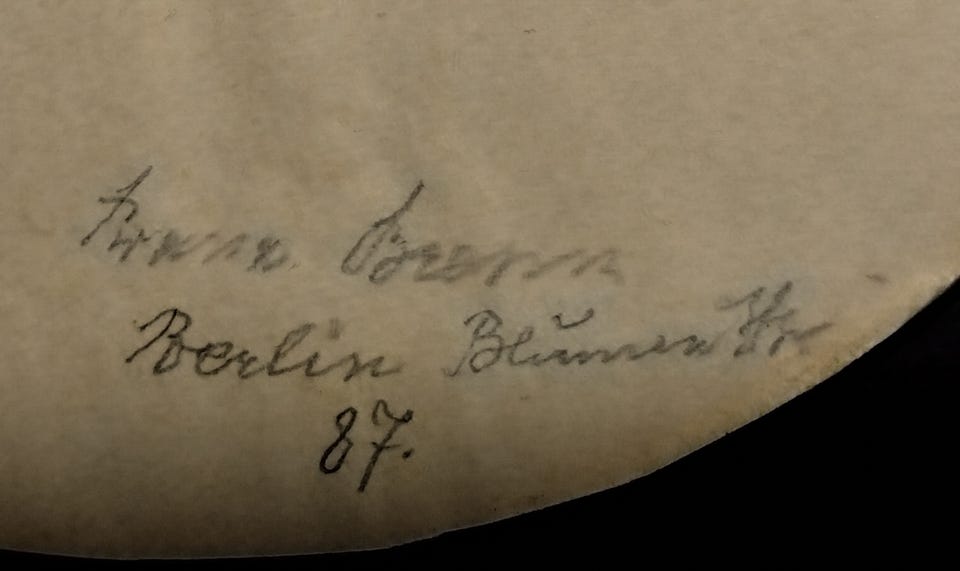 Franz
Berlin Blumen Str
87.